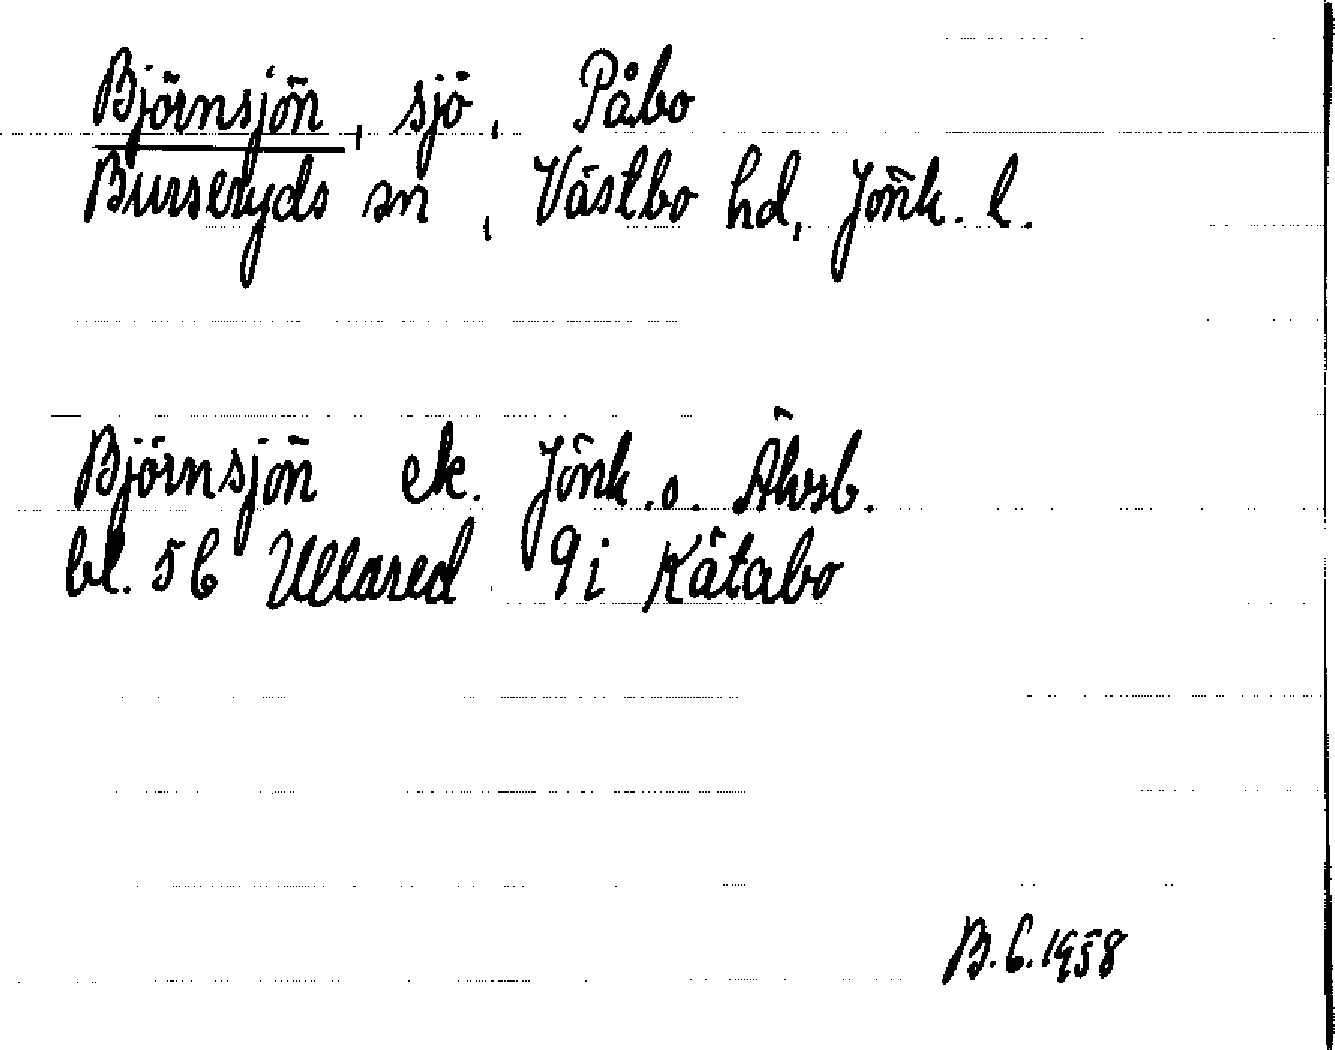 Björnsjön, sjö, Påbo
Burseryds sn, Västbo hd, Jönk. l.
Björnsjön ek. Jönk. o. Älvsb.
bl. 5 6 Ullared 9i Kåtabo
B.C. 1958